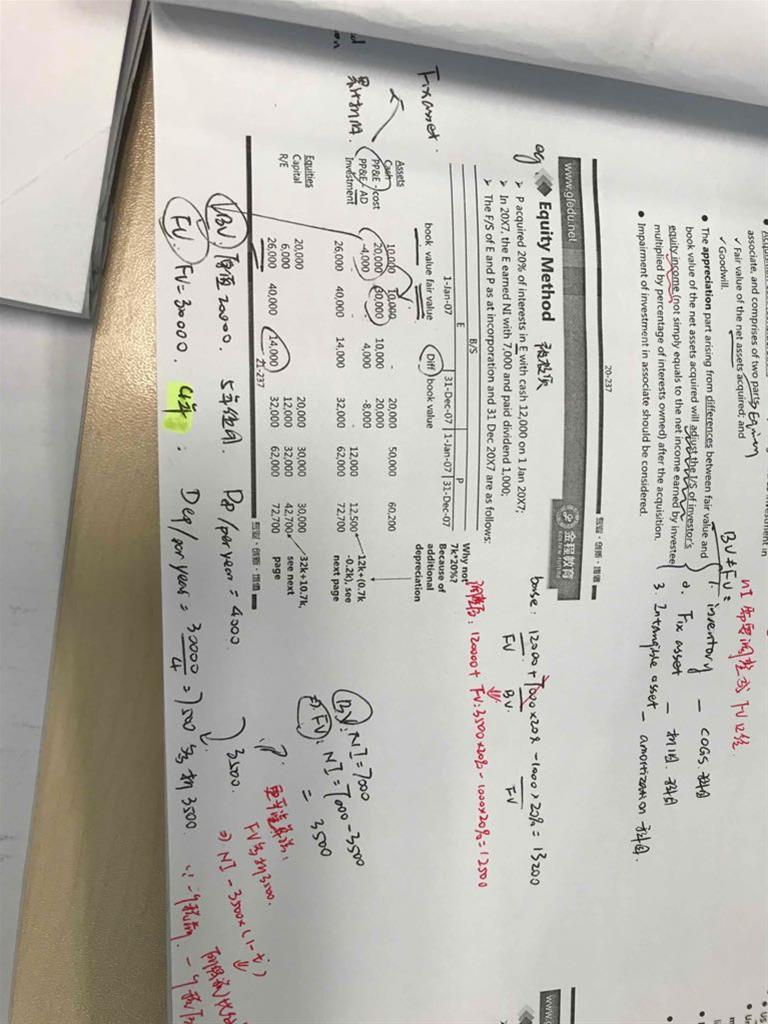 associate, and comprises of two parts: Equity
✓ Fair value of the net assets acquired; and
✓ Goodwill.
• The appreciation part arising from differences between fair value and
book value of the net assets acquired will adjust the I/S of investor's
equity income (not simply equals to the net income earned by investee
multiplied by percentage of interests owned) after the acquisition.
• Impairment of investment in associate should be considered.
BV ≠ FV:
1. inventory - COGS
2. Fix asset -
3. Intangible asset - amortization
20-237
专业·创新·增值
www.gfedu.net
金程教育
eg.
Equity Method
➢ P acquired 20% of interests in E with cash 12,000 on 1 Jan 20X7;
➢ In 20X7, the E earned NI with 7,000 and paid dividend 1,000;
➢ The F/S of E and P as at incorporation and 31 Dec 20X7 are as follows:
base: 12000 + 7000×20% - 1000×20% = 13200
FV BV. FV
120000 + FV: 3500×20% - 1000×20% = 12500
B/S
E P
1-Jan-07 31-Dec-07 1-Jan-07 31-Dec-07
book value fair value Diff book value
Assets
Cash 10,000 10,000 - 20,000 50,000 60,200
PP&E -/cost 20,000 30,000 10,000 20,000
PP&E - AD -4,000 4,000 -8,000
Investment 12,000 12,500
26,000 40,000 14,000 32,000 62,000 72,700
Equities
Capital 20,000 20,000 30,000 30,000
R/E 6,000 12,000 32,000 42,700
26,000 40,000 14,000 32,000 62,000 72,700
Why not
7k*20%?
Because of
additional
depreciation
12k+(0.7k
-0.2k), see
next page
32k+10.7k,
see next
page
21-237
专业·创新·增值
Fix asset.
BV: NI = 7000
⇒ FV: NI = 7000 - 3500
= 3500
BV. 原值 20000. 5年使用. Dep/per year = 4000.
3500.
FV. FV = 30000. 4年: Dep/per year = 30000/4 = 7500 多折 3500.
FV多折3500.
⇒ NI - 3500×(1-t)
www.g